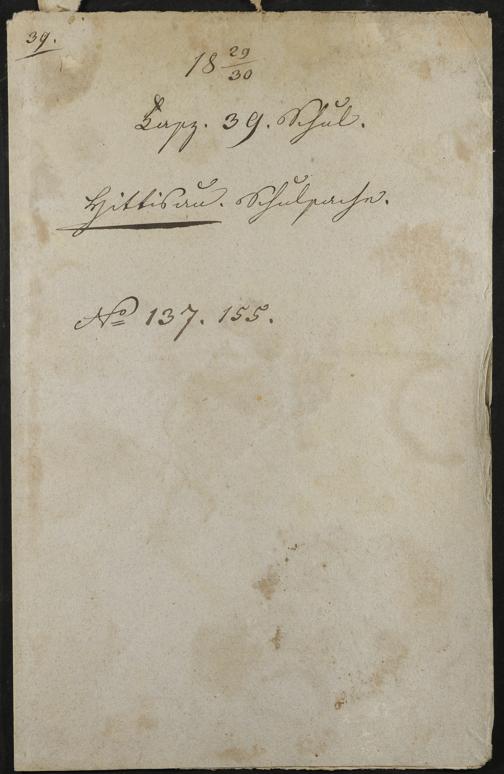 39.
18 29/30
Fasz. 39. Schul.
Hittisau. Schulsache.
No 137. 155.